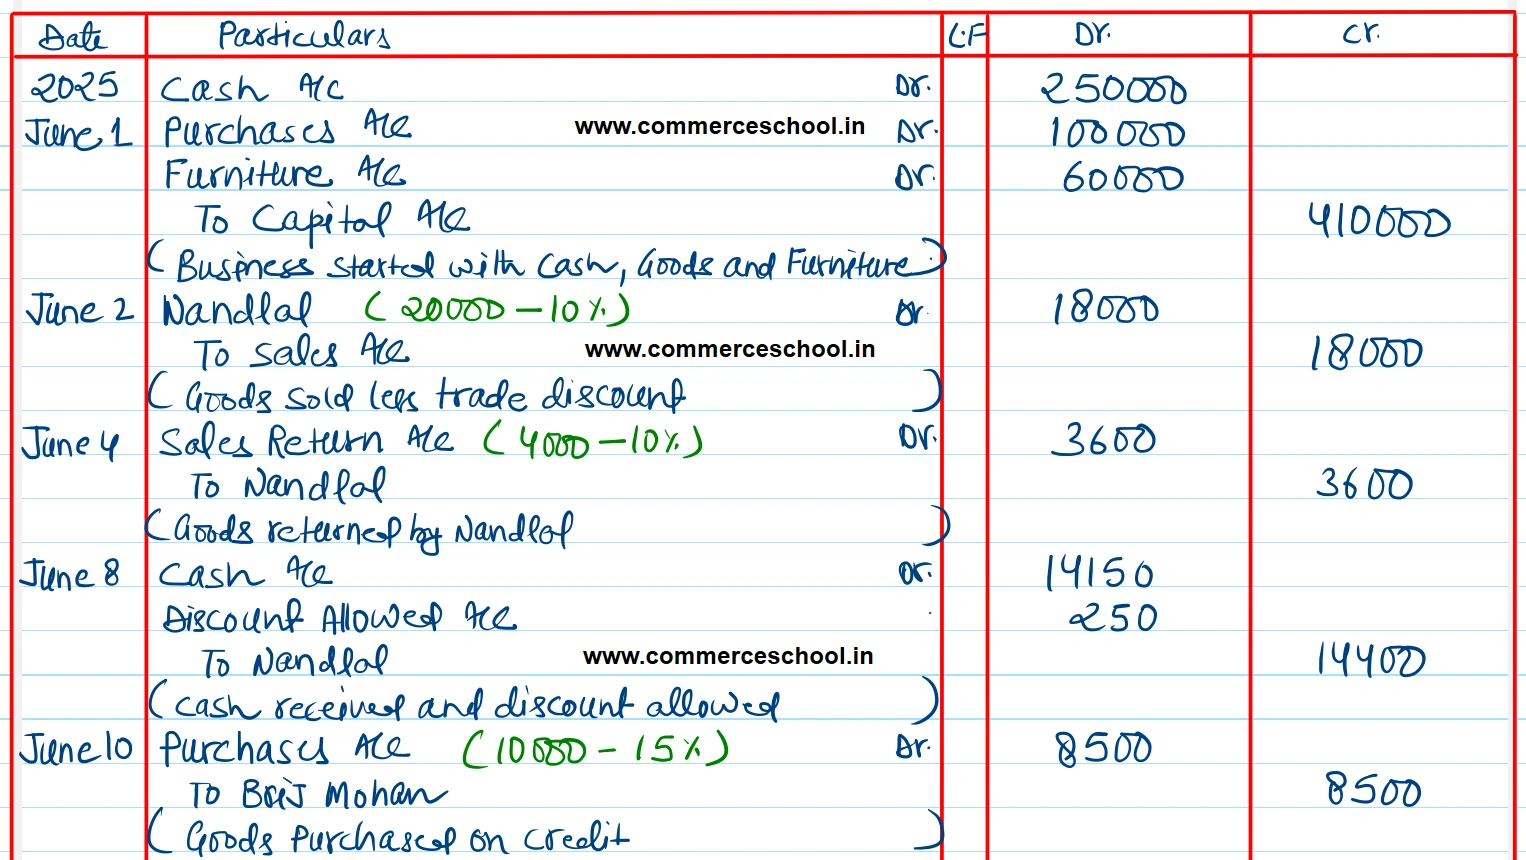 Date Particulars L.F Dr. Cr.
2025 Cash A/c Dr. 250000
June 1 Purchases A/c www.commerceschool.in Dr. 100000
Furniture A/c Dr. 60000
To Capital A/c 410000
(Business started with Cash, Goods and Furniture)
June 2 Nandlal (20000 - 10%) Dr. 18000
To Sales A/c www.commerceschool.in 18000
(Goods sold less trade discount)
June 4 Sales Return A/c (4000 - 10%) Dr. 3600
To Nandlal 3600
(Goods returned by Nandlal)
June 8 Cash A/c Dr. 14150
Discount Allowed A/c 250
To Nandlal www.commerceschool.in 14400
(Cash received and discount allowed)
June 10 Purchases A/c (10000 - 15%) Dr. 8500
To Brij Mohan 8500
(Goods Purchased on credit)